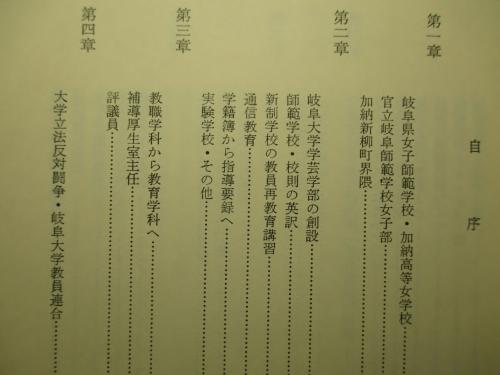 自序
第一章
岐阜県女子師範学校・加納高等女学校…………
官立岐阜師範学校女子部…………
加納新柳町界隈…………
第二章
岐阜大学学芸学部の創設…………
師範学校・校則の英訳…………
新制学校の教員再教育講習…………
通信教育…………
学籍簿から指導要録へ…………
実験学校・その他…………
第三章
教職学科から教育学科へ…………
補導厚生室主任…………
評議員…………
第四章
大学立法反対闘争・岐阜大学教員連合…………